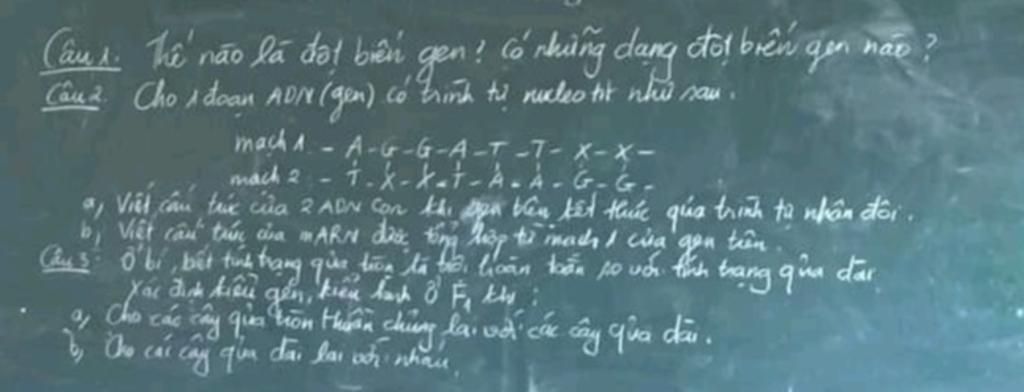 Câu 1. Thế nào là đột biến gen? Có những dạng đột biến gen nào?
Câu 2. Cho 1 đoạn ADN (gen) có trình tự nucleotit như sau.
mạch 1 - A - G - G - A - T - T - X - X -
mạch 2 : - T - X - X - T - A - A - G - G -
a, Viết cấu trúc của 2 ADN con khi gen trên kết thúc quá trình tự nhân đôi.
b, Viết cấu trúc của mARN được tổng hợp từ mạch 1 của gen trên.
Câu 3: Ở bí, biết tính trạng qủa tròn là trội hoàn toàn so với tính trạng qủa dài
Xác định kiểu gen, kiểu hình ở F1 khi :
a, Cho các cây qủa tròn thuần chủng lai với các cây qủa dài.
b, Cho các cây qủa dài lai với nhau.